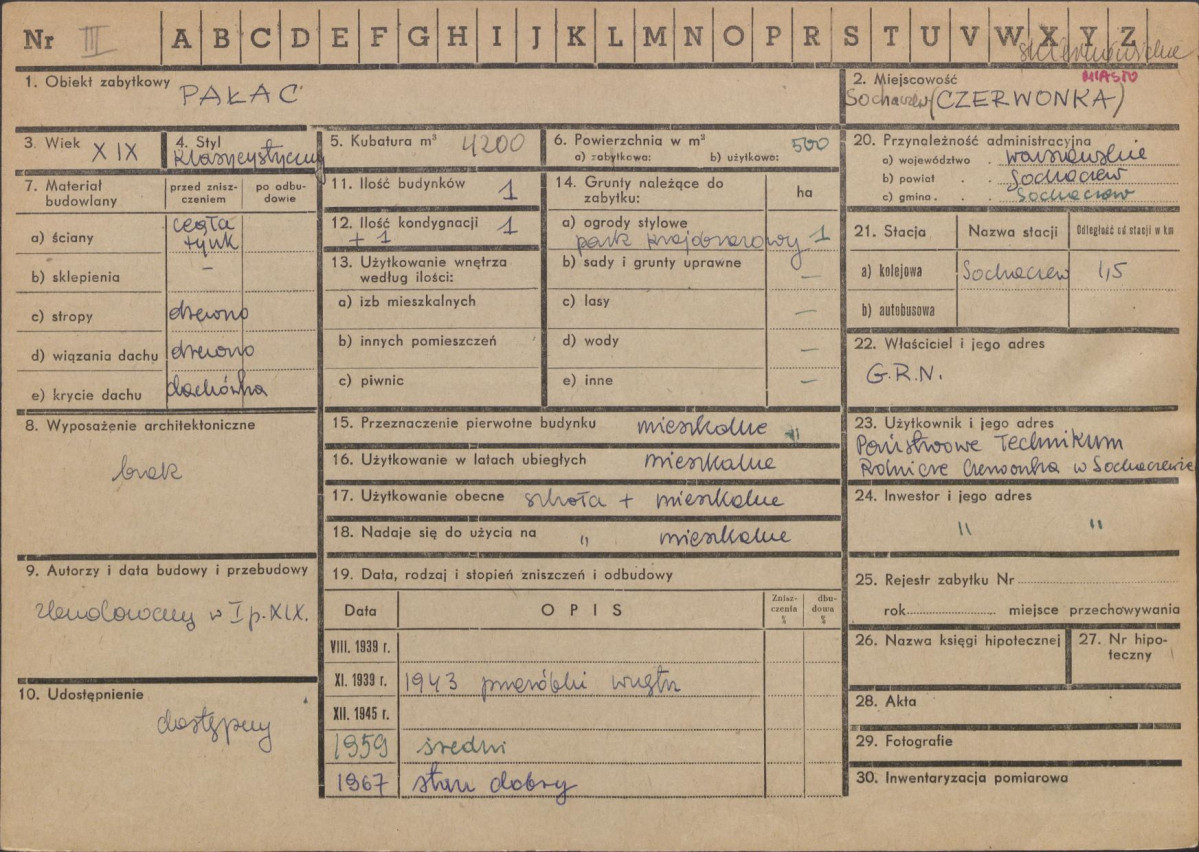 Nr III A B C D E F G H I J K L M N O P R S T U V W X Y Z
skierniewickie
1. Obiekt zabytkowy PAŁAC
2. Miejscowość MIASTO
Sochaczew (CZERWONKA)
3. Wiek XIX
4. Styl
klasycystyczny
5. Kubatura m³ 4200
6. Powierzchnia w m²
a) zabytkowa: b) użytkowa: 500
7. Materiał budowlany
przed zniszczeniem
po odbudowie
a) ściany cegła
tynk
b) sklepienia –
c) stropy drewno
d) wiązania dachu drewno
e) krycie dachu dachówka
8. Wyposażenie architektoniczne
brak
9. Autorzy i data budowy i przebudowy
zbudowany w I p. XIX.
10. Udostępnienie
dostępny
11. Ilość budynków 1
12. Ilość kondygnacji 1
+ 1
13. Użytkowanie wnętrza
według ilości:
a) izb mieszkalnych
b) innych pomieszczeń
c) piwnic
14. Grunty należące do
zabytku: ha
a) ogrody stylowe
park krajobrazowy 1
b) sady i grunty uprawne –
c) lasy –
d) wody –
e) inne –
15. Przeznaczenie pierwotne budynku mieszkalne
16. Użytkowanie w latach ubiegłych mieszkalne
17. Użytkowanie obecne szkoła + mieszkalne
18. Nadaje się do użycia na " mieszkalne
19. Data, rodzaj i stopień zniszczeń i odbudowy
Data OPIS Zniszczenia % dbudowa %
VIII. 1939 r.
XI. 1939 r. 1943 przeróbki wnętrz
XII. 1945 r.
1959 średni
1967 stan dobry
20. Przynależność administracyjna
a) województwo . warszawskie
b) powiat . . Sochaczew
c) gmina . . Sochaczew
21. Stacja Nazwa stacji Odległość od stacji w km
a) kolejowa Sochaczew 1,5
b) autobusowa
22. Właściciel i jego adres
G.R.N.
23. Użytkownik i jego adres
Państwowe Technikum
Rolnicze Czerwonka w Sochaczewie
24. Inwestor i jego adres
" "
25. Rejestr zabytku Nr
rok miejsce przechowywania
26. Nazwa księgi hipotecznej
27. Nr hipoteczny
28. Akta
29. Fotografie
30. Inwentaryzacja pomiarowa